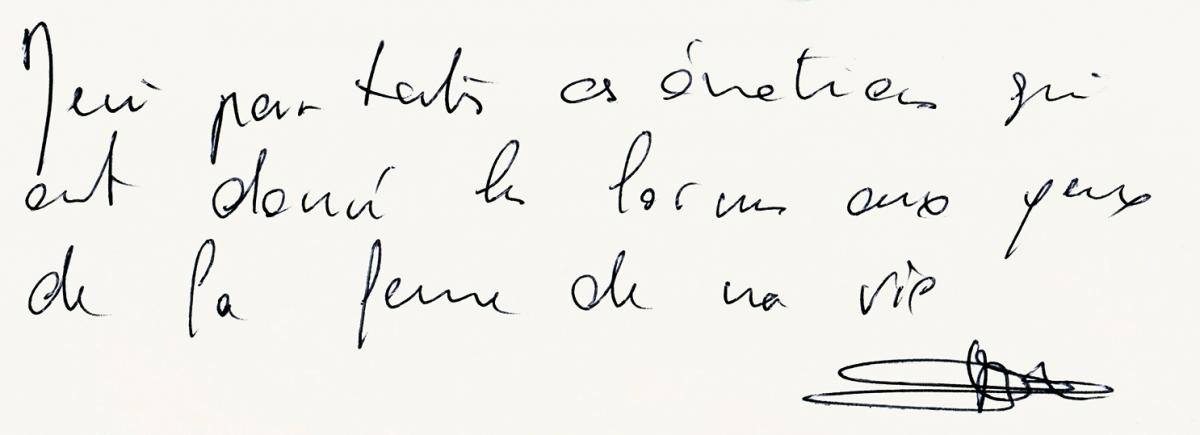 Merci pour toutes ces émotions qui
ont donné les larmes aux yeux
de la femme de ma vie